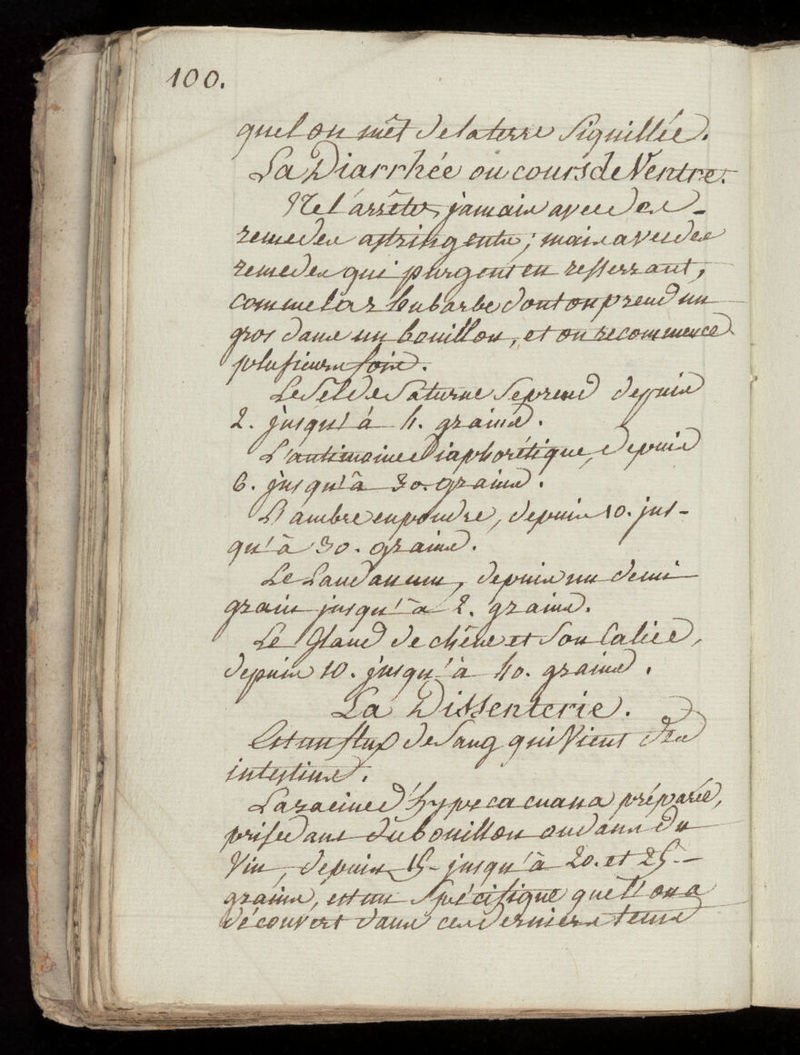 100.
que l'on mêt de la terre Siguillée.
La Diarrhée ou cours de Ventre.
Ne l'arrêtés jamais avec des
remedes astringents; mais avec des
remedes qui purgent en resserrant,
comme la rhubarbe dont on prend un
gros dans un bouillon, et on recommence
plusieurs fois.
Le Sel de Saturne Se prend depuis
2. jusqu'à 4. grains.
L'antimoine Diaphorétique, depuis
6. jusqu'à 30. grains.
L'ambre en poudre, depuis 10. jus-
qu'à 30. grains.
Le Laudanum, depuis un demi
grain jusqu'à 2. grains.
Le Gland de chêne et Son Calice,
depuis 10. jusqu'à 40. grains.
La Dissenterie.
Est un flux de Sang qui Vient des
intestins.
La racine d'hypecacuana préparée,
prise dans du bouillon ou dans du
Vin, depuis 15. jusqu'à 20. et 25.
grains, est un Spécifique que l'on a
découvert dans ces derniers tems